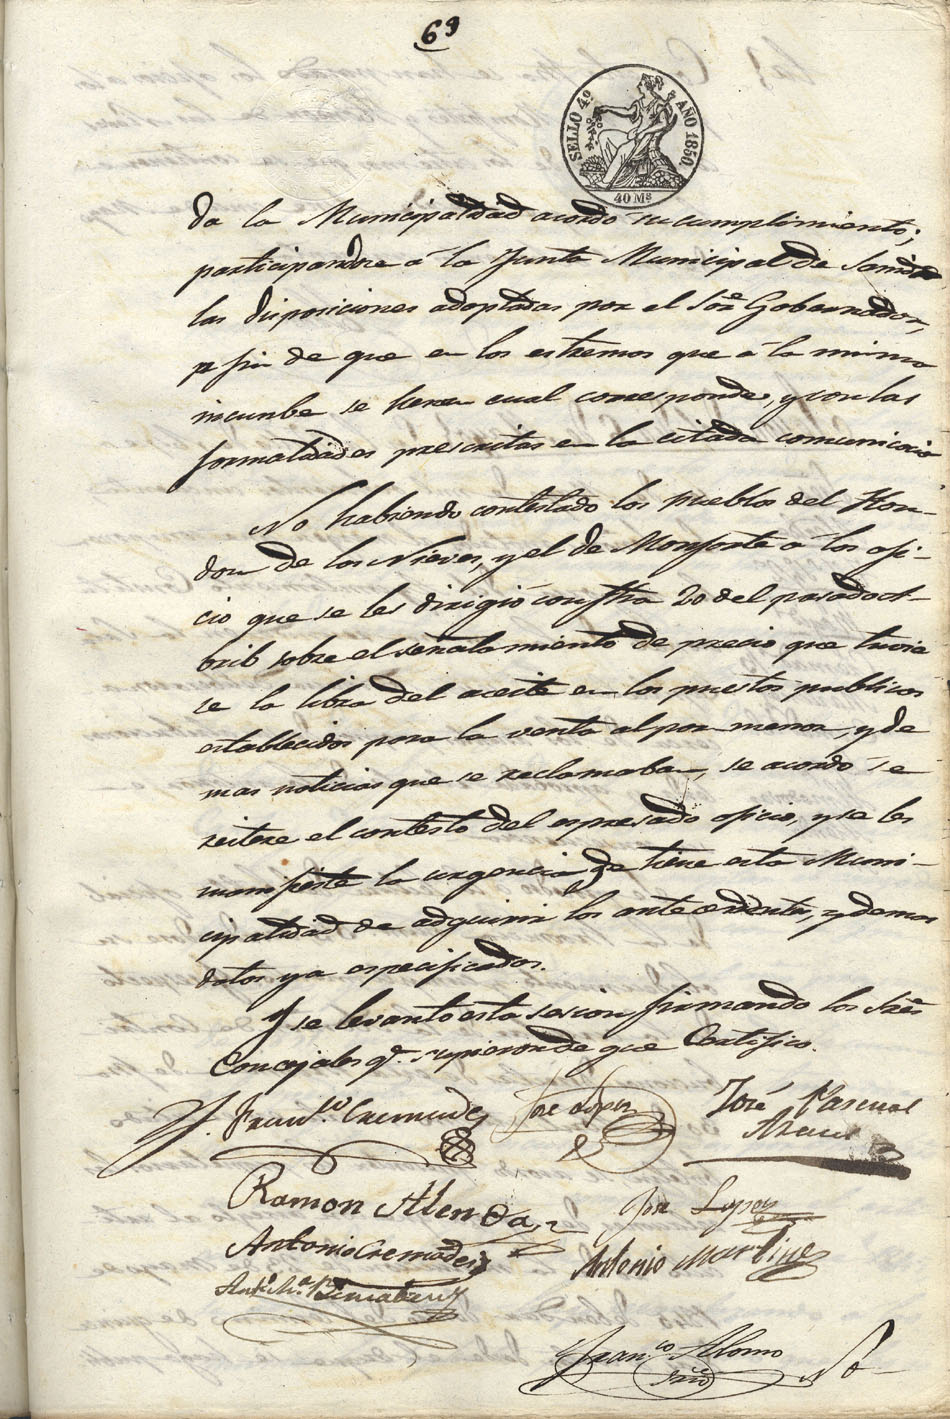 69
SELLO 4º AÑO 1850.
40 Ms
da la Municipalidad acordó su cumplimiento;
participandose á la Junta Municipal de Sanidad
las disposiciones adoptadas por el Sor. Gobernador,
a fin de que en los estremos que á la misma
incumbe se llenen cual corresponde, y con las
formalidades prescritas en la citada comunicacion
No habiendo contestado los pueblos del Hon-
don de las Nieves, y el de Monforte á los ofi-
cio que se les dirigió con fha 20 del pasado oct-
bre sobre el señalamiento de precio que tuvie
se la libra del aceite en los puestos publicos
establecidos para la venta al por menor, y de
mas noticias que se reclamaban, se acordó se
reitere el contesto del espresado oficio, y se les
manifieste la urgencia q. tiene esta Muni-
cipalidad de adquirir los antecedentes, y demas
datos ya especificados.
Y se levantó esta sesion firmando los Sres
Concejales q. supieron de que Certifico.
Franco. Cremades José Lopez José Pascual
Ramon Alenda José Lopez
Antonio Cremades Antonio Martinez
Franco. Alonso
Srio